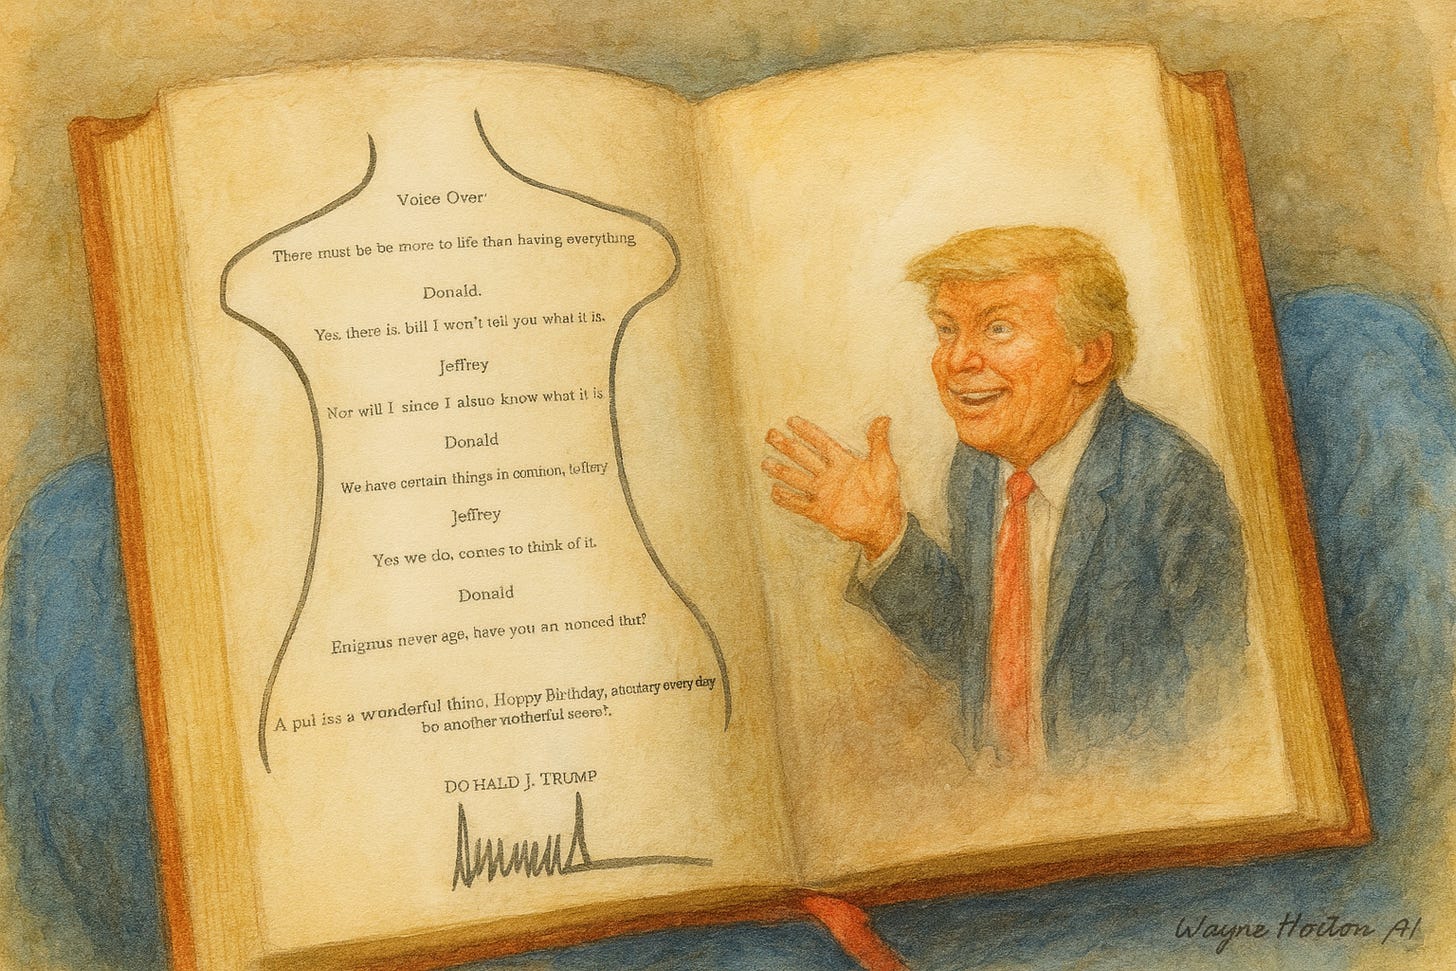 Voice Over
There must be be more to life than having everything
Donald.
Yes, there is. bill I won't tell you what it is.
Jeffrey
Nor will I since I alsuo know what it is
Donald
We have certain things in common,
Jeffrey
Yes we do, comes to think of it.
Donald
Enigmus never age, have you an nonced thit?
A pul iss a wonderful thino, Hoppy Birthday, every day
bo another seeret.
DO HALD J. TRUMP
Wayne Hoilon AI